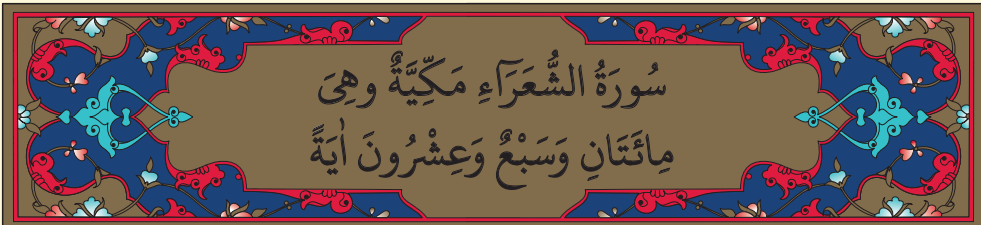 سُورَةُ الشُّعَرَٓاءِ مَكِّيَّةٌ وهِىَ
مِائَتَانِ وَسَبْعٌ وَعِشْرُونَ اٰيَةً